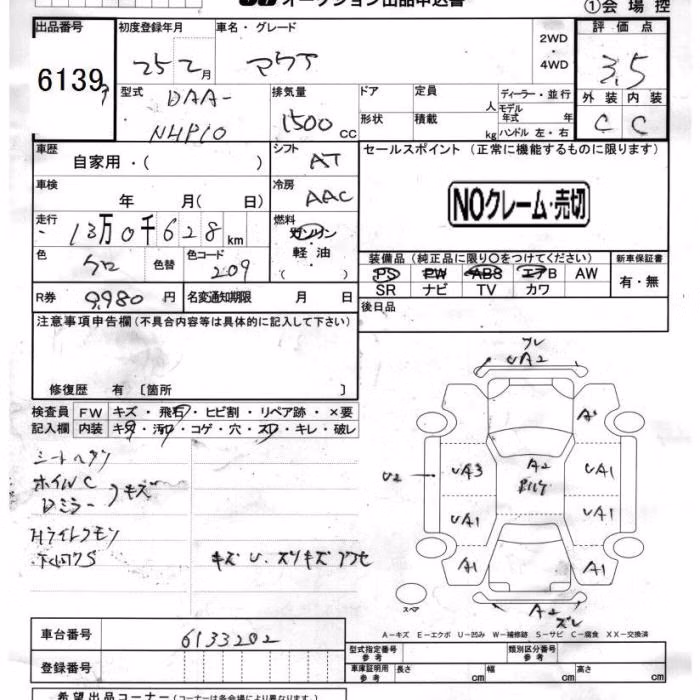 オークション出品申込書
①会場控
出品番号
6139
初度登録年月
25 2月
車名・グレード
アクア
2WD
・
4WD
評価点
3.5
外装 内装
C C
型式
DAA-
NHP10
排気量
1500 cc
ドア
定員
人
形状
積載
kg
ディーラー・並行
モデル年式 年
ハンドル 左・右
車歴
自家用・( )
シフト
AT
セールスポイント (正常に機能するものに限ります)
NOクレーム・売切
車検
年 月( 日)
冷房
AAC
走行
13万0千628km
燃料
ガソリン
軽油
( )
色
クロ
色替
色コード
209
装備品 (純正品に限り○をつけてください)
PS PW ABS エアB AW
SR ナビ TV カワ
新車保証書
有・無
R券
9,980円
名変通知期限 月 日
後日品
注意事項申告欄(不具合内容等は具体的に記入して下さい)
修復歴 有 〔箇所 〕
検査員
記入欄
FW キズ・飛石・ヒビ割・リペア跡・×要
内装 キズ・汚レ・コゲ・穴・スレ・キレ・破レ
シートヘタリ
ホイルC
Dミラー
キズ
キズ U.スリキズ
UA2
A2
UA3
UA1
UA1
UA1
U2
A1
A1
A2
ズレ
スペア
A-キズ E-エクボ U-凹み W-補修跡 S-サビ C-腐食 XX-交換済
車台番号
6133202
登録番号
型式指定番号
参考
類別区分番号
参考
車庫証明用
参考
長さ cm
幅 cm
高さ cm
希望出品コーナー(コーナーは各会場により異なります)